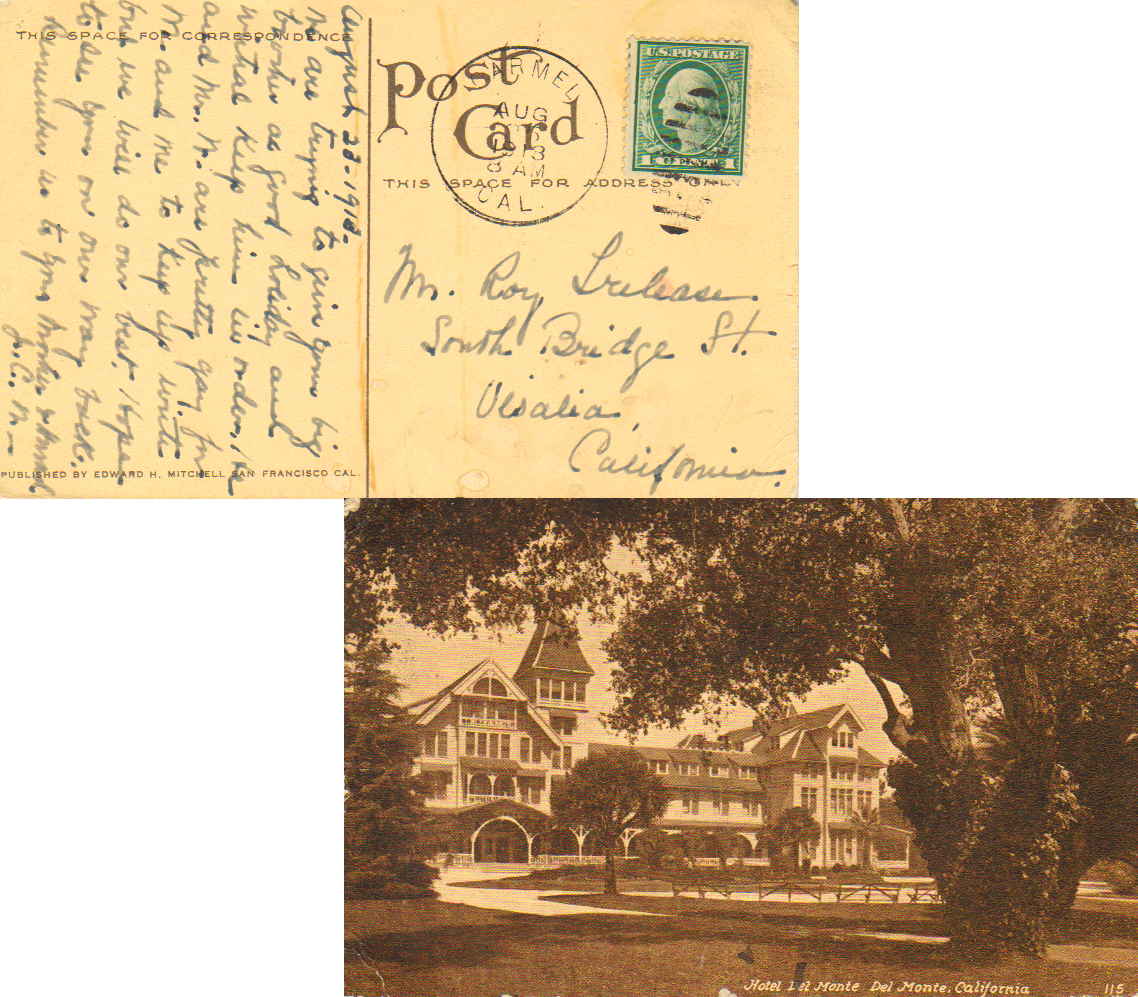 THIS SPACE FOR CORRESPONDENCE
August 23-1913-
We are trying to give your big
brother as good holiday and
withal keep him in order. He
and Mr. N. are pretty gay for
M. and me to keep up with
but we will do our best. Hope
to see you on our way back.
Remember us to your Mother &
J. C. M-
PUBLISHED BY EDWARD H. MITCHELL SAN FRANCISCO CAL.
Post
Card
CARMEL
AUG
1913
8 AM
CAL.
U.S. POSTAGE
THIS SPACE FOR ADDRESS ONLY
Mr. Roy Trelease.
South Bridge St.
Visalia,
California.
Hotel Del Monte Del Monte, California
115